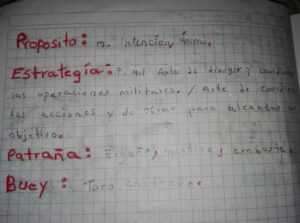 Proposito: m. intención, ánimo.
Estrategía: F. Mil Arte de dirigir y coordina
las operaciones militares. / Arte de coordin
las acciones y de para alcanzar u
objetivo.
Patraña: Engaño, mentira, embuste.
Buey: Toro castrado.